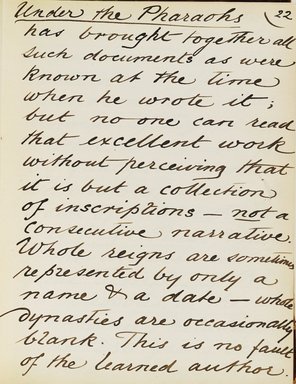 Under the Pharaohs (22
has brought together all
such documents as were
known at the time
when he wrote it;
but no one can read
that excellent work
without perceiving that
it is but a collection
of inscriptions — not a
consecutive narrative.
Whole reigns are sometimes
represented by only a
name & a date — whole
dynasties are occasionally
blank. This is no fault
of the learned author.